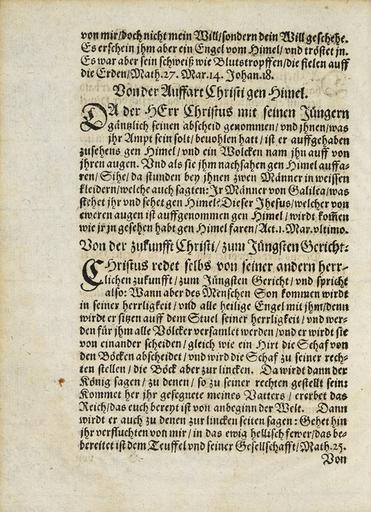 von mir/doch nicht mein Will/sondern dein Will geschehe.
Es erschein jhm aber ein Engel vom Himel/vnd tröstet jn.
Es war aber sein schweiß wie Blutstropffen/die fielen auff
die Erden/Math.27. Mar.14. Johan.18.
Von der Auffart Christi gen Himel.
DA der HErr Christus mit seinen Jüngern
gäntzlich seinen abscheid genommen/vnd jhnen/was
jhr Ampt sein solt/beuohlen hatt/ist er auffgehaben
zusehens gen Himel/vnd ein Wolcken nam jhn auff von
jhren augen. Vnd als sie jhm nachsahen gen Himel auffa-
ren/Sihe/da stunden bey jhnen zwen Männer in weissen
kleidern/welche auch sagten: Jr Männer von Galilea/was
stehet jhr vnd sehet gen Himel? Dieser Jhesus/welcher von
eweren augen ist auffgenommen gen Himel/wirdt kom̄en
wie jr jn gesehen habt gen Himel faren/Act.1. Mar.vltimo.
Von der zukunfft Christi/zum Jüngsten Gericht.
CHristus redet selbs von seiner andern herr-
lichen zukunfft/zum Jüngsten Gericht/vnd spricht
also: Wann aber des Menschen Son kommen wirdt
in seiner herrligkeit/vnd alle heilige Engel mit jhm/denn
wirdt er sitzen auff dem Stuel seiner herrligkeit/vnd wer-
den für jhm alle Völcker versamlet werden/vnd er wirdt sie
von einander scheiden/gleich wie ein Hirt die Schaf von
den Böcken abscheidet/vnd wird die Schaf zu seiner rech-
ten stellen/die Böck aber zur lincken. Da wirdt dann der
König sagen/zu denen/so zu seiner rechten gestellt sein:
Kommet her jhr gesegnete meines Vatters/ererbet das
Reich/das euch bereyt ist von anbeginn der Welt. Dann
wirdt er auch zu denen zur lincken seiten sagen: Gehet hin
jhr verfluchten von mir/in das ewig hellisch fewer/das be-
bereitet ist dem Teuffel vnd seiner Gesellschafft/Math.25.
Von